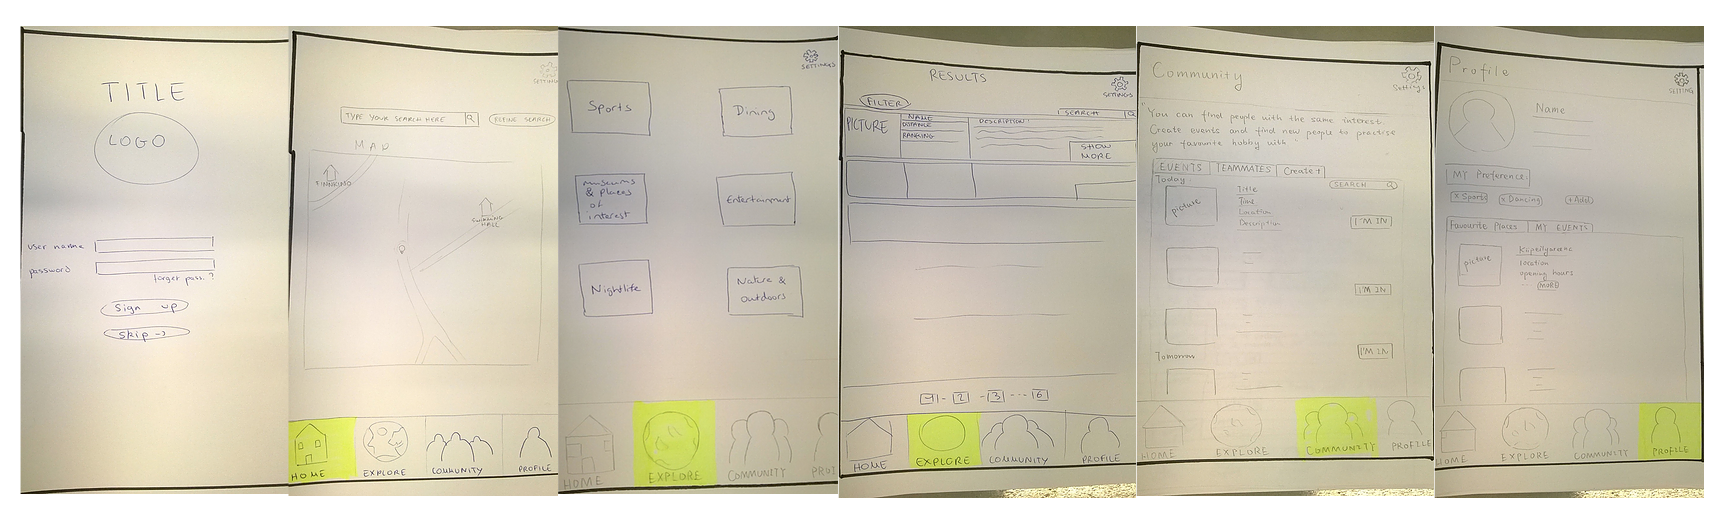 TITLE
LOGO
User name
password
forget pass. ?
Sign up
Skip →
SETTINGS
TYPE YOUR SEARCH HERE
REFINE SEARCH
MAP
FINNKINO
SWIMMING
HALL
HOME
EXPLORE
COMMUNITY
PROFILE
SETTINGS
Sports
Dining
museums
& places
of
interest
Entertainment
Nightlife
Nature &
outdoors
HOME
EXPLORE
COMMUNITY
PROF
RESULTS
SETTINGS
FILTER
SEARCH
PICTURE
NAME
DISTANCE
RANKING
DESCRIPTION
SHOW
MORE
2 - 3 --- 6
HOME
EXPLORE
COMMUNITY
PROFILE
Community
Settings
"You can find people with the same interest.
Create events and find new people to practise
your favourite hobby with"
EVENTS TEAMMATES Create+
Today:
SEARCH
picture
Title
Time
Location
Description
I'M IN
I'M IN
I'M IN
Tomorrow
HOME
EXPLORE
COMMUNITY
PROFILE
Profile
SETTING
Name
MY Preference:
x Sports
x Dancing
+Add
Favourite Places MY EVENTS
picture
location
opening hours
... MORE
HOME
EXPLORE
COMMUNITY
PROFILE